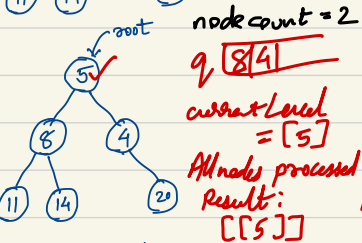 11
14
root
5
8
4
11
14
20
node count = 2
q 8 4
current Level
= [5]
All nodes processed
Result:
[[5]]